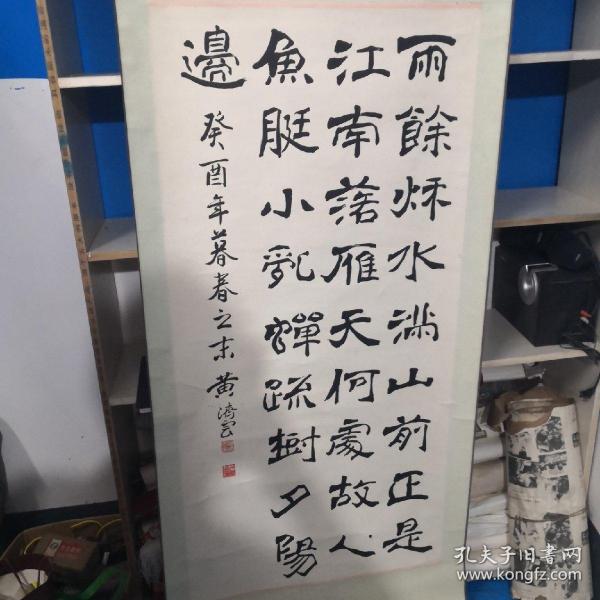 雨餘烁水满山前正是
江南落雁天何處故人
魚艇小亂蟬疏樹夕陽
邊 癸酉年暮春之末 黄濤雲
孔夫子旧書网
www.kongfz.com